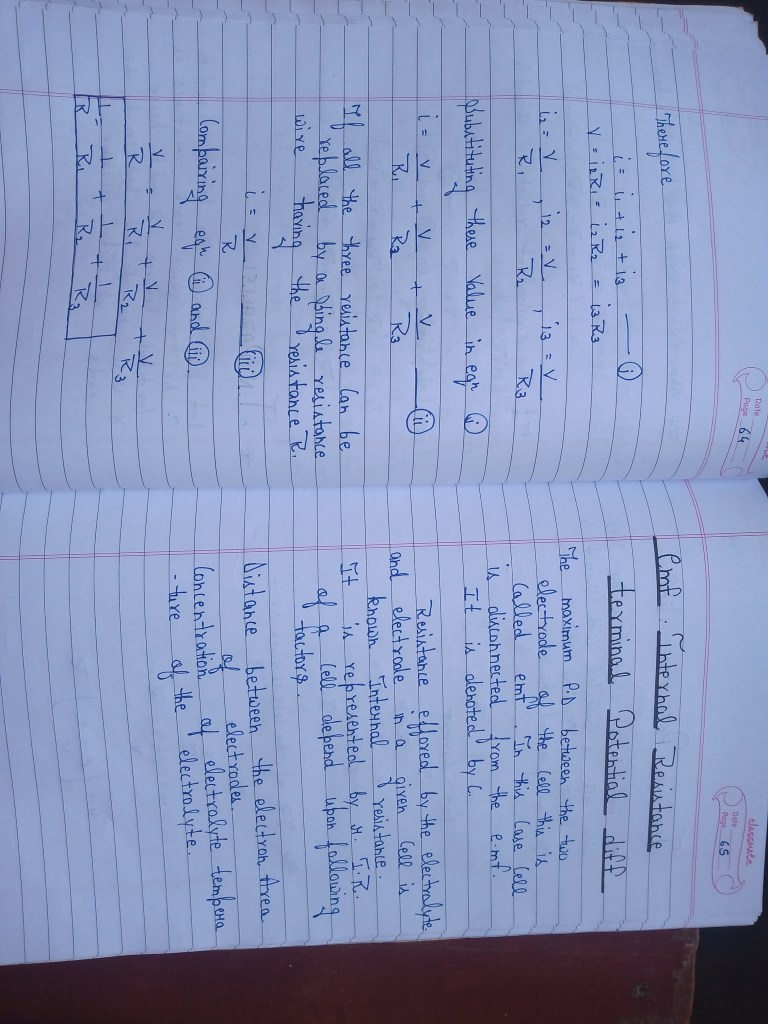 Date
Page 64
Therefore
i = i1 + i2 + i3 —— (i)
V = i2R1 = i2R2 = i3R3
i2 = V/R1 , i2 = V/R2 , i3 = V/R3
Substituting these Value in eqn (i)
i = V/R1 + V/R2 + V/R3 —— (ii)
If all the three resistance Can be
replaced by a Single resistance
wire having the resistance R.
i = V/R —— (iii)
Compairing eqn (ii) and (iii)
V/R = V/R1 + V/R2 + V/R3
1/R = 1/R1 + 1/R2 + 1/R3
classmate
Date
Page 65
Emf . Internal Resistance
terminal Potential diff
The maximum P.D between the two
electrode of the cell this is
Called emf. In this Case Cell
is disconnected from the e.mf.
It is denoted by
Resistance offored by the electrolyte
and electrode in a given Cell is
known Internal resistance.
It is represented by r. I.R.
of a Cell depend upon following
factors.
Distance between the electron Area
of electrodes
Concentration of electrolyte tempera
-ture of the electrolyte.